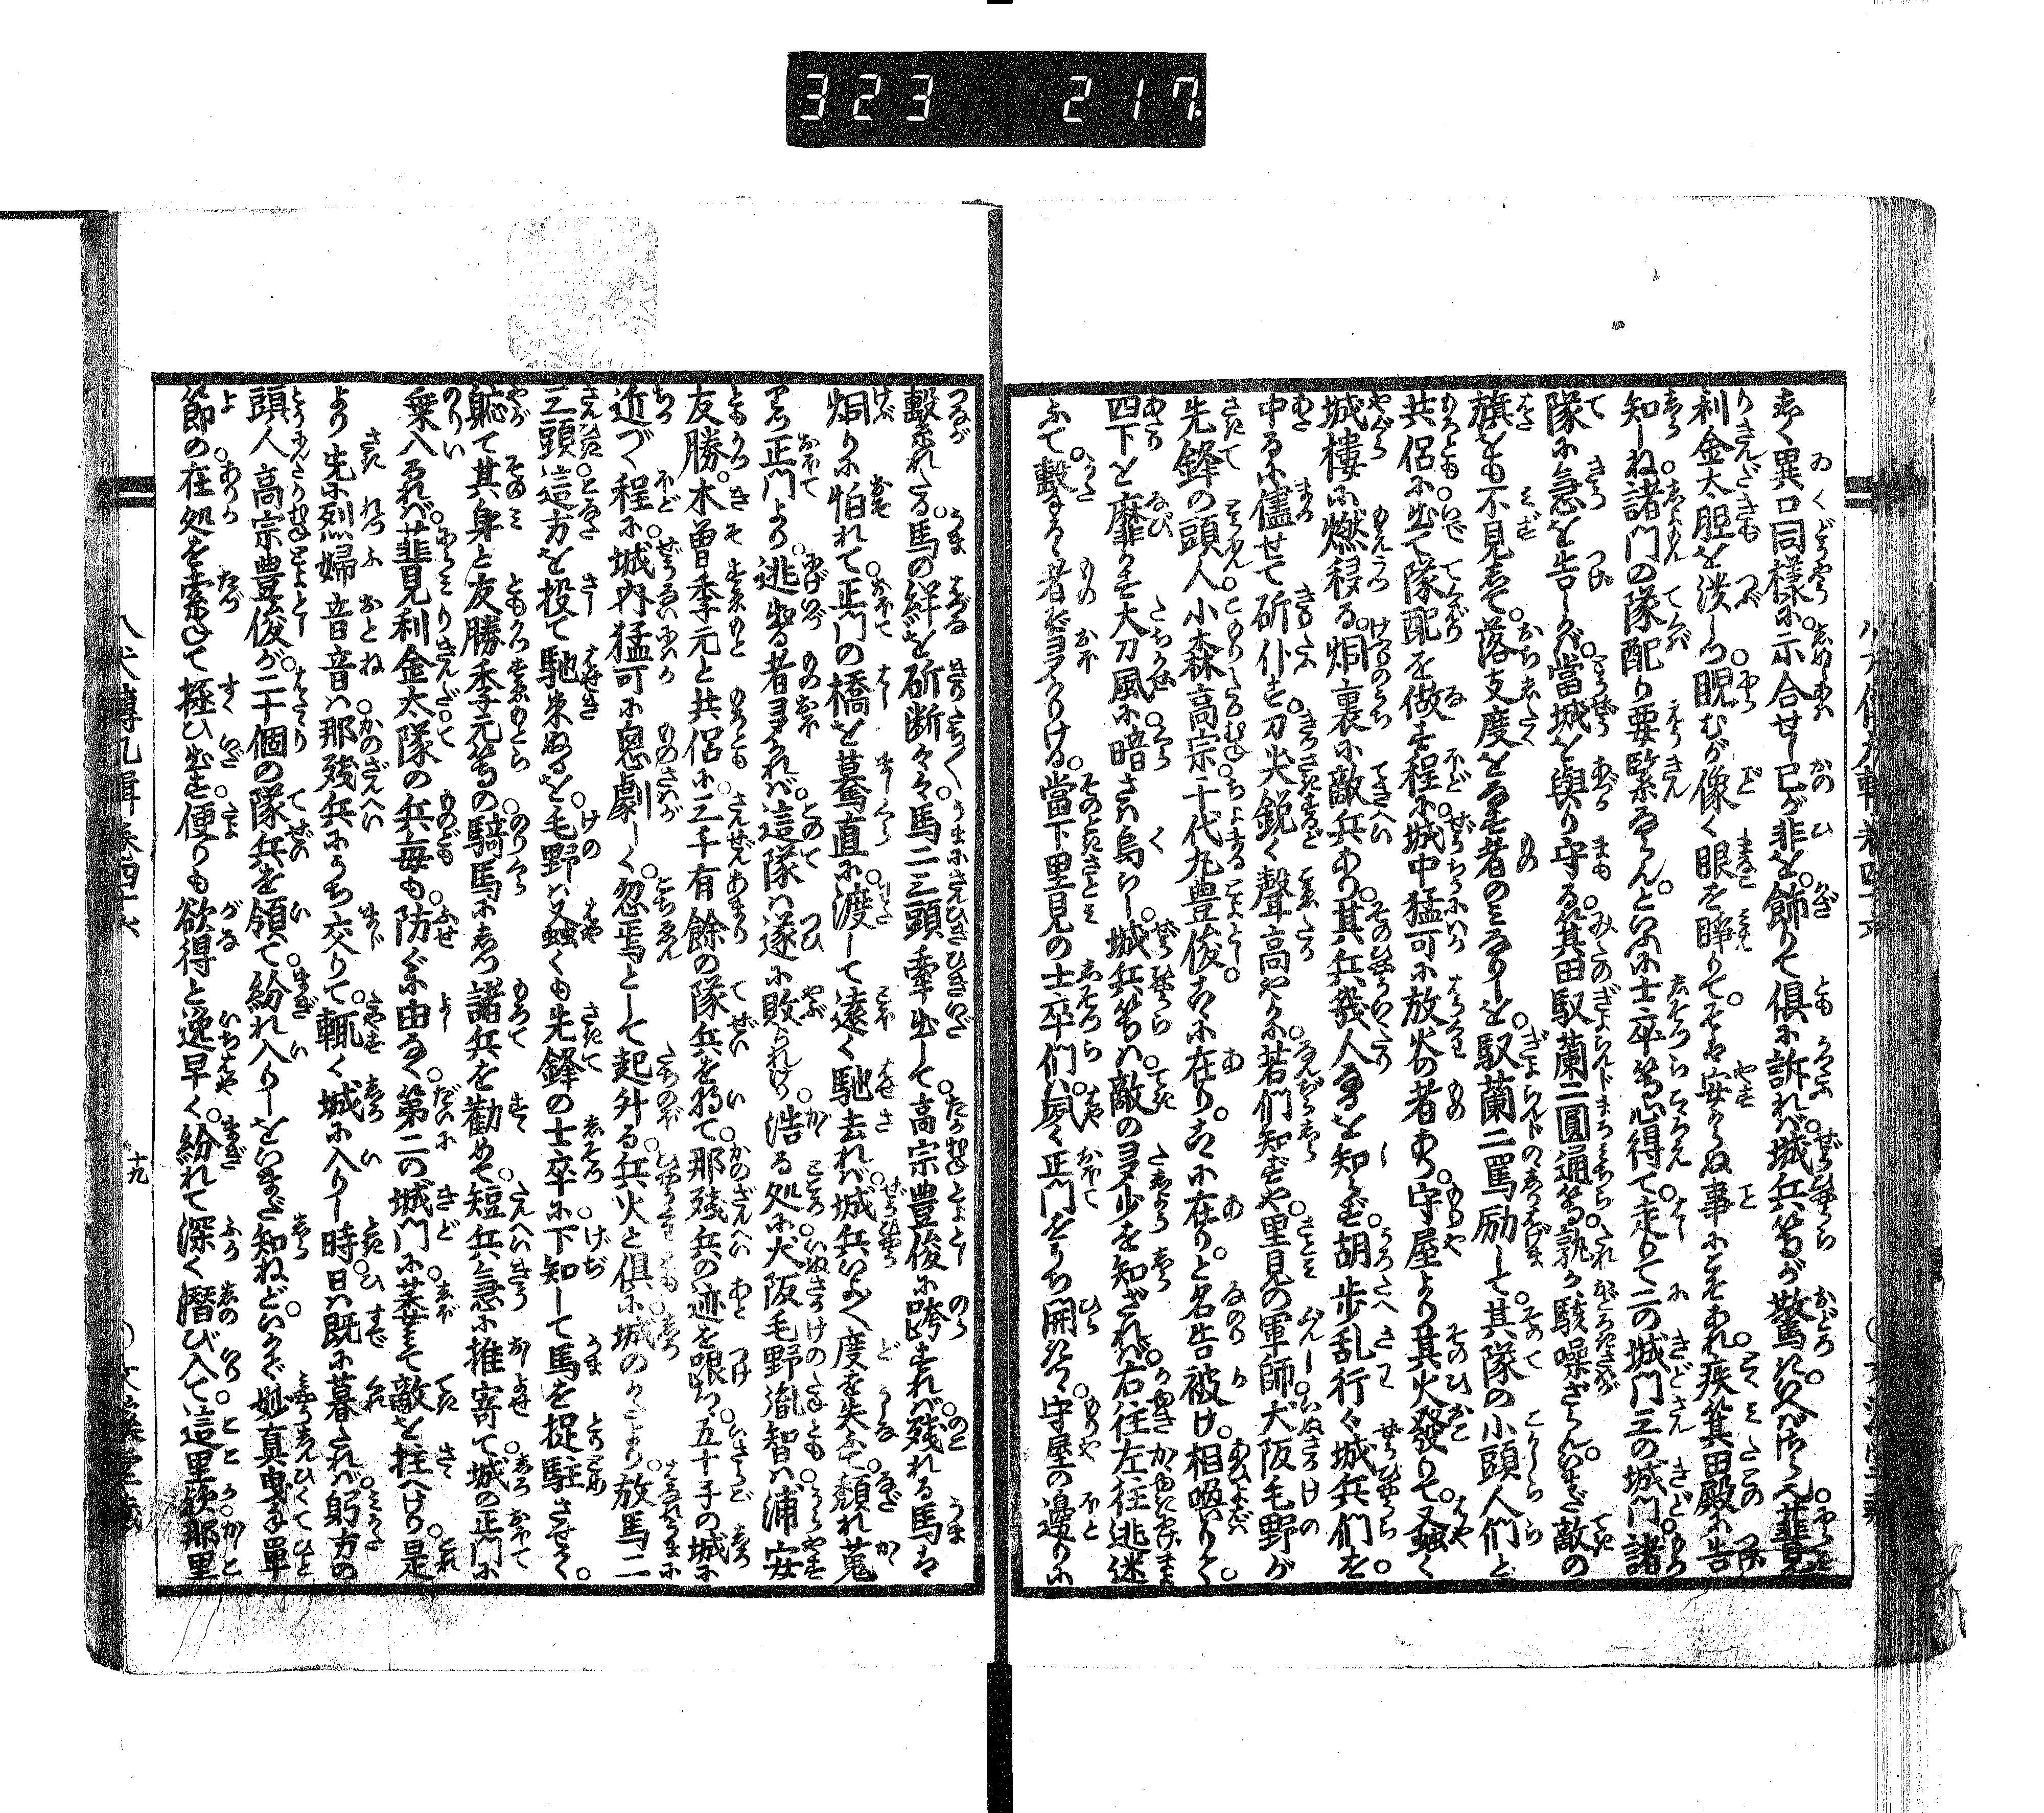 323 217
しく異口同様に示合せし己が非を飾りて倶に訴れば城兵等が驚に又ばいうべ韮見
利金太胆を淡しつ睨むが像く眼を睜りてそは安からぬ事にこそあれ疾箕田殿に告
知しね諸門の隊配り要緊ならんといふに士卒等心得て走りて二の城門三の城門諸
隊に急を告しかば當城を与り守る箕田馭蘭二圓通等孰か駭噪ざらんいまだ敵の
旗をも不見して落支度をする者のみなりしを馭蘭二罵励して其隊の小頭人們と
共侶に出て隊配を做す程に城中猛可に放火の者あり守屋より其火發りて又蚤く
城樓に燃移る烟裏に敵兵あり其兵幾人なるを知らず胡歩乱行く城兵們を
中るに儘せて斫仆す刀尖鋭く聲高やかに若們知ずや里見の軍師犬阪毛野が
先鋒の頭人小森高宗千代丸豊俊こゝに在りこゝに在りと名告被け相喚りて
四下を靡かす大刀風に暗さは烏夜し城兵等は敵の多少を知ざれば右往左往逃迷
ふて撃るゝ者ぞ多かりける當下里見の士卒們は夙く正門をうち開きつ守屋の邊りに
繋れたる馬の絆を斫断々々馬二三頭牽出して高宗豊俊に跨すれば残れる馬は
烟りに怕れて正門の橋を驀直に渡して遠く馳去れば城兵いよゝ度を失ふて頽れ蒐
りつ正門より逃出る者多かれば這隊は遂に敗られけり浩る処に犬阪毛野胤智は浦安
友勝木曽季元と共侶に三千有餘の隊兵を将て那残兵の迹を跟つゝ五十子の城に
近づく程に城内猛可に悤劇しく忽焉として起升る兵火と倶に城のかたより放馬二
三頭這方を投て馳来ぬるを毛野は又蚤くも先鋒の士卒に下知して馬を捉駐させて
軈て其身と友勝季元等の騎馬にしつ諸兵を勧めて短兵急に推寄て城の正門に
乗入るれば韮見利金太隊の兵毎も防ぐに由なく第二の城門に莱せて敵を拄へけり是
より先に烈婦音音は那残兵にうち交りて輒く城に入りし時日は既に暮たれば躬方の
頭人高宗豊俊が二十個の隊兵を領て紛れ入りしをいまだ知ねどいかで妙真曳手單
節の在処を索ねて拯ひ出す便りも欲得と逸早く紛れて深く潜び入て這里歟那里
八犬傳九輯巻四十六
十九